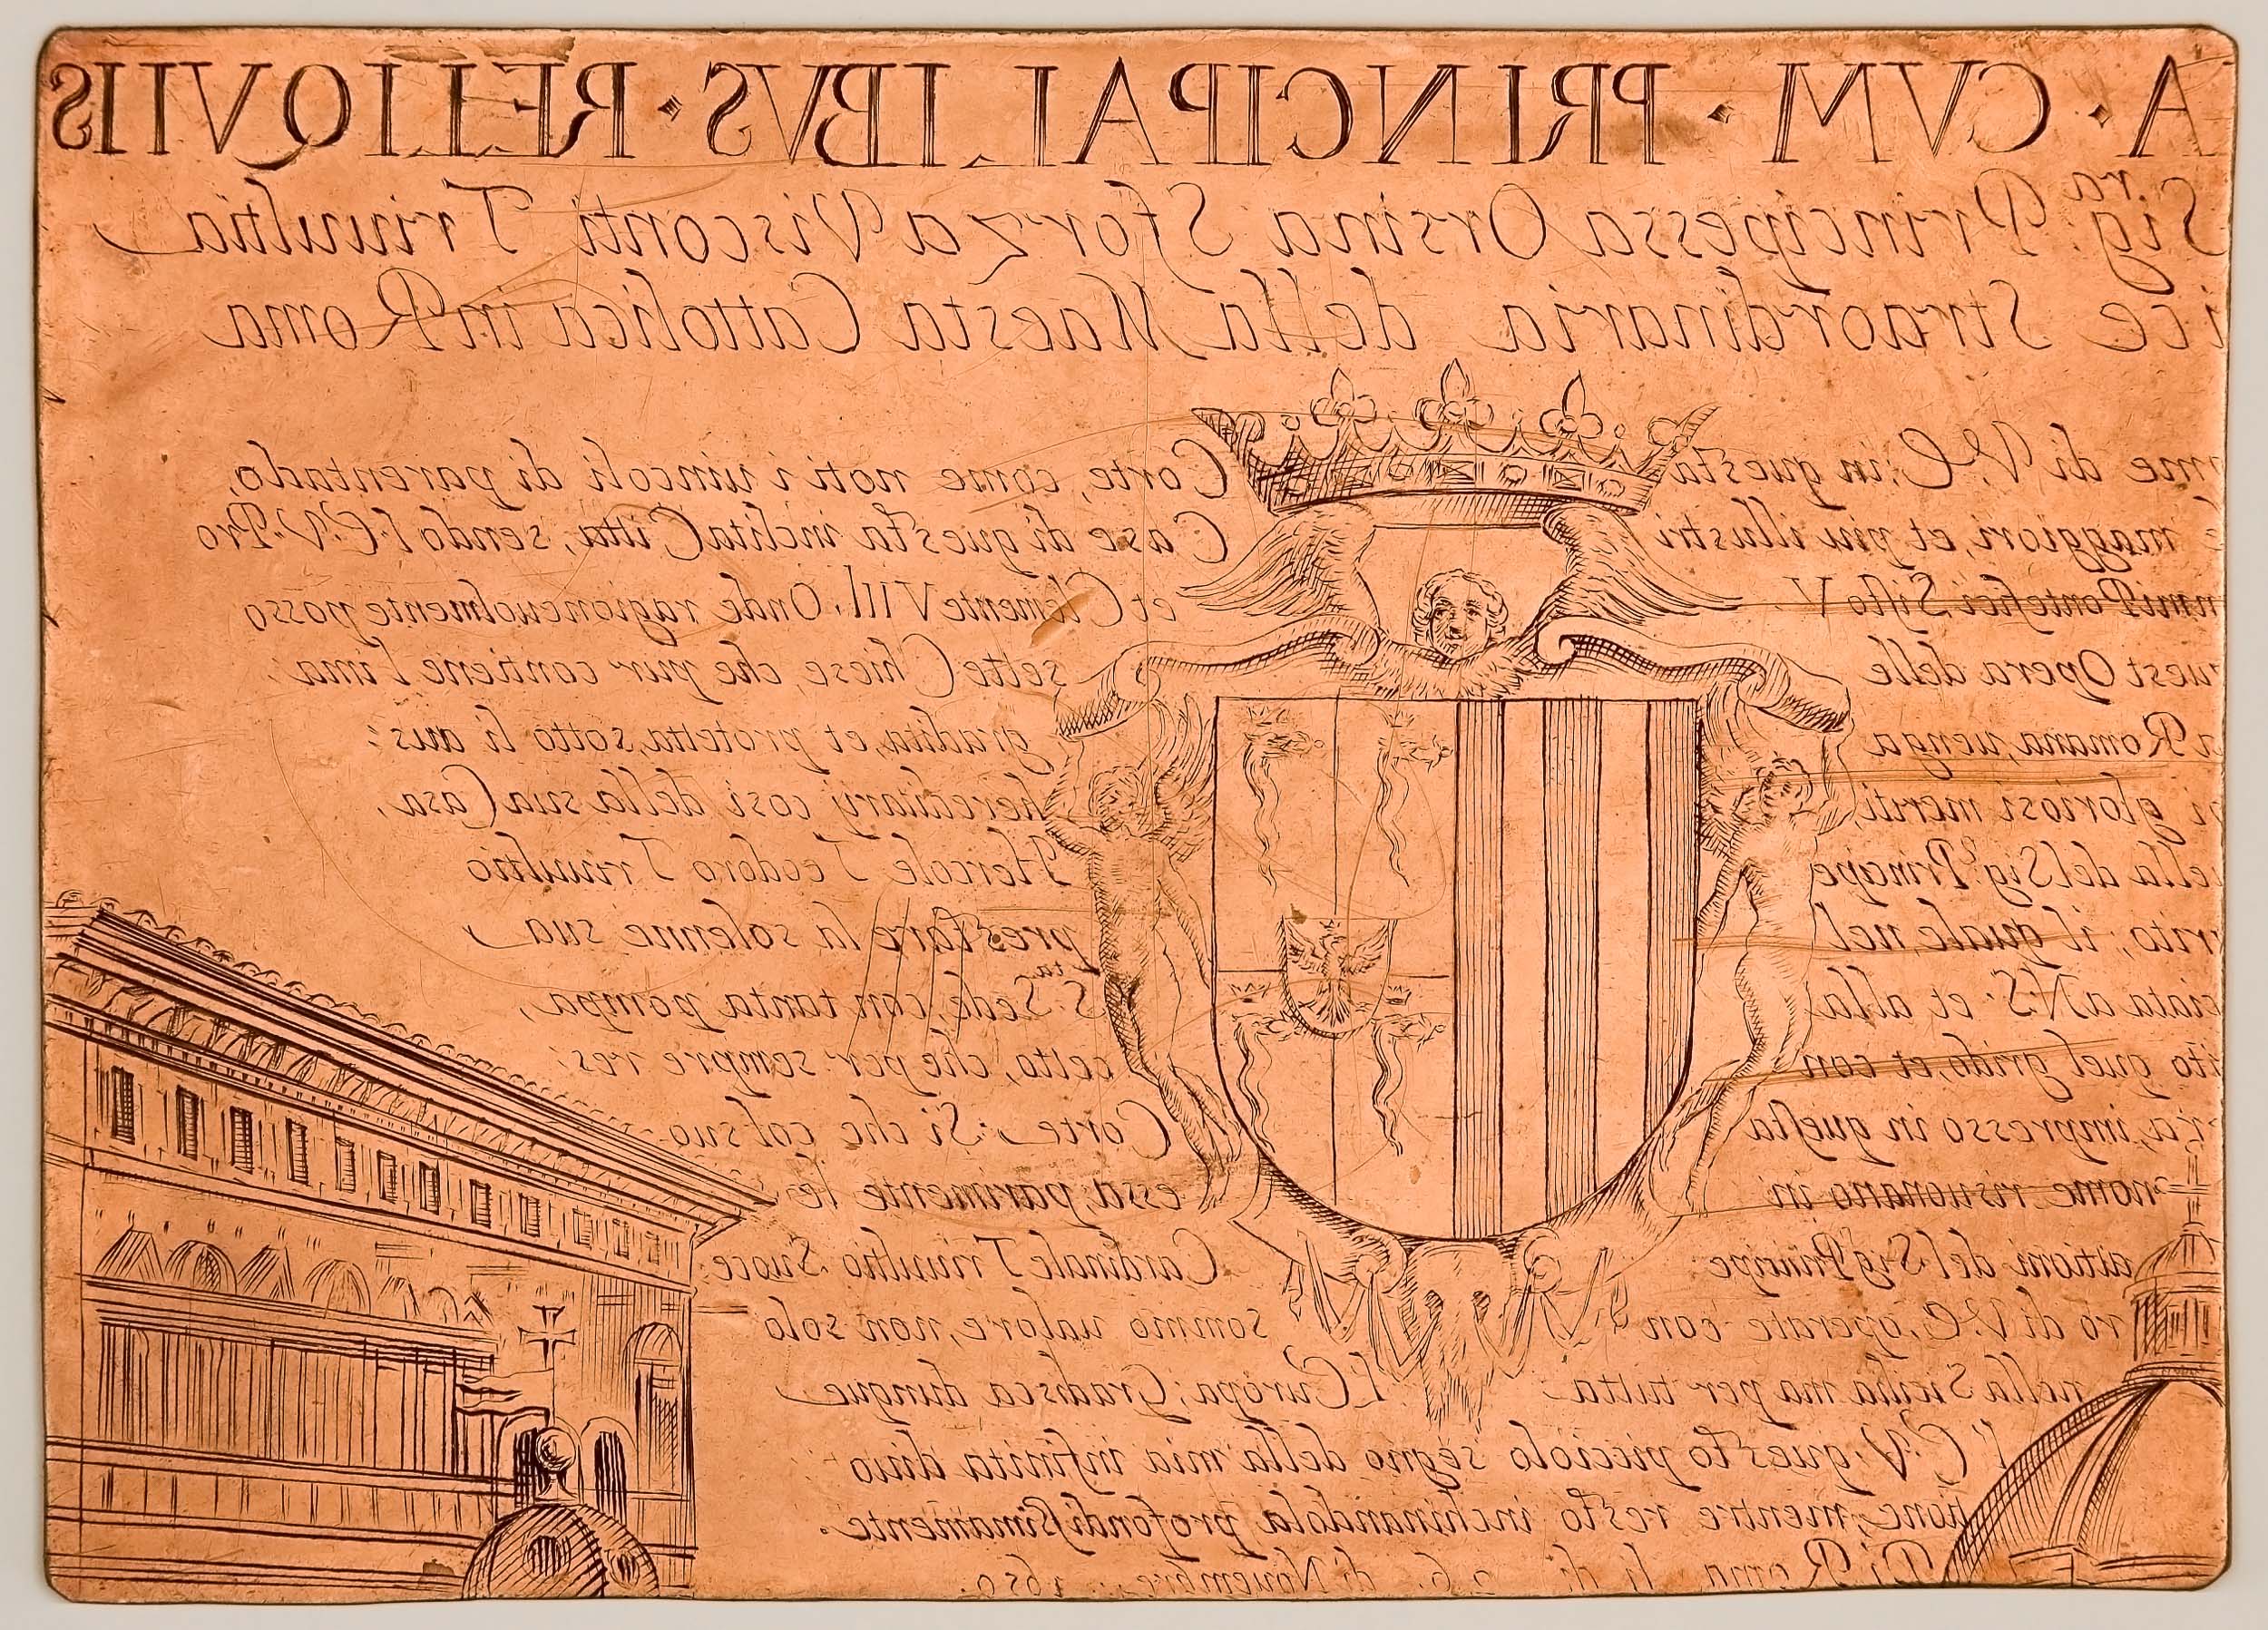 A · CVM · PRINCIPALIBVS · RELIQVIIS
Sig.ra Principessa Orsina Sforza Visconti Triuultia
ice Straordinaria della Maesta Cattolica in Roma
me di V.E. in questa Corte, come noti i uincoli di parentado,
maggiori, et piu illustri Case di questa inclita Citta, sendo l'E.V. Pro
mmi Pontefici Sisto V et Clemente VIII. Onde ragioneuolmente posso
uest Opera delle sette Chiese, che pur contiene l'ima
a Romana, uenga gradita, et protetta, sotto li aus:
i gloriosi meriti, hereditarij cosi della sua Casa,
ella del Sig.r Principe Hercole Teodoro Triuultio
rito; il quale nel prestare la solenne sua
ciata a N.S. et alla S.ta Sede, con tanta pompa,
ito quel grido, et con cetto, che per sempre res:
ra, impresso in questa Corte. Si che col suo
nome risuonano in essa parimente le
attioni del Sig Principe Cardinale Triuultio Suoce:
ro di V.E, operate con sommo ualore, non solo
nella Sicilia ma per tutta l'Europa; Gradisca dunque
l'E.V. questo picciolo segno della mia infinita diuo:
tione, mentre resto inchinandola profondissimamente.
Di Roma li di 26. di Nouembre. 1650.